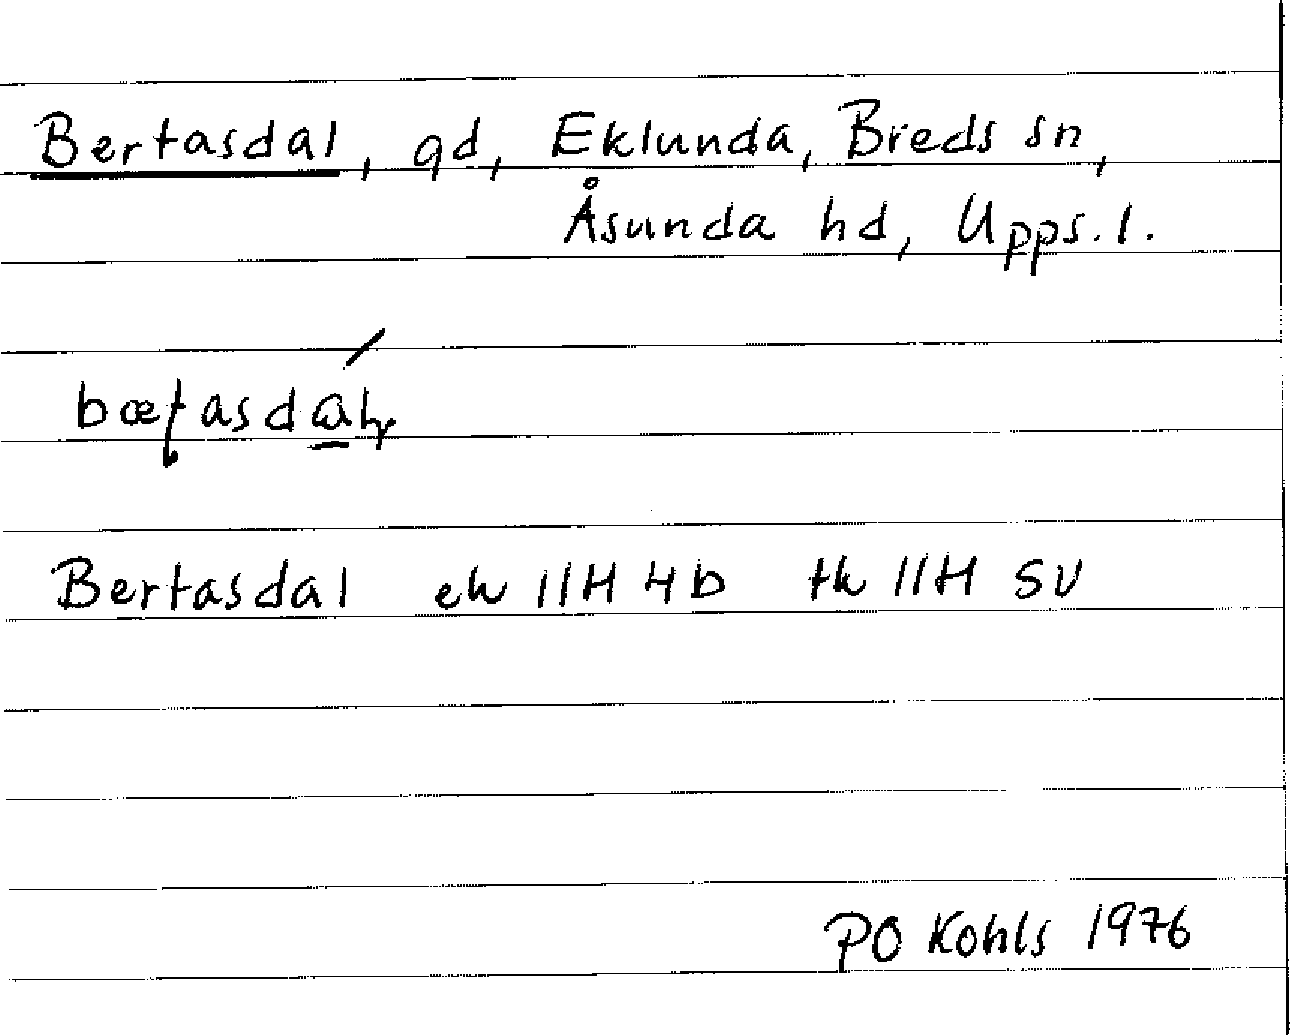 Bertasdal, gd, Eklunda, Breds sn,
Åsunda hd, Upps. l.
Bertasdal ek 11H 4b tk 11H SV
PO Kohls 1976